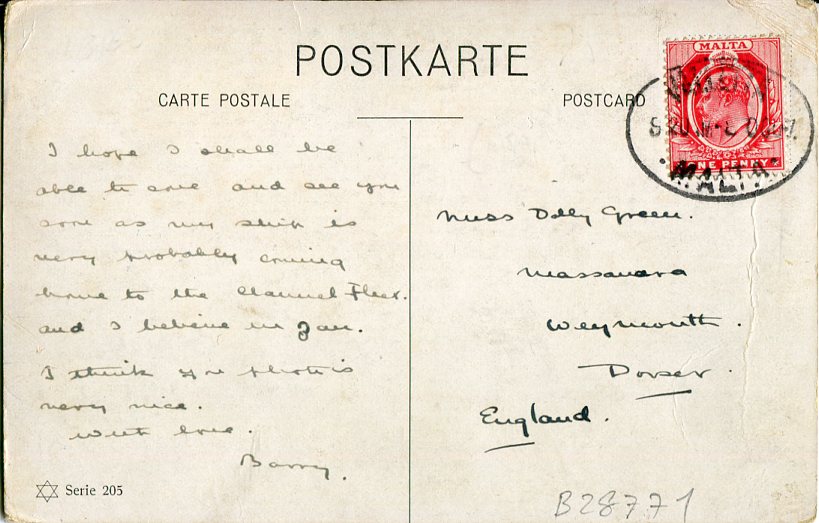 POSTKARTE
CARTE POSTALE
POSTCARD
MALTA
ONE PENNY
MALTA
I hope I shall be
able to come and see you
soon as my ship is
very probably coming
home to the Channel Fleet.
and I believe in Jan.
I think yr photo is
very nice.
with love.
Barry.
Miss Dolly Green.
Massandra
Weymouth.
Dorset.
England.
Serie 205
B28771